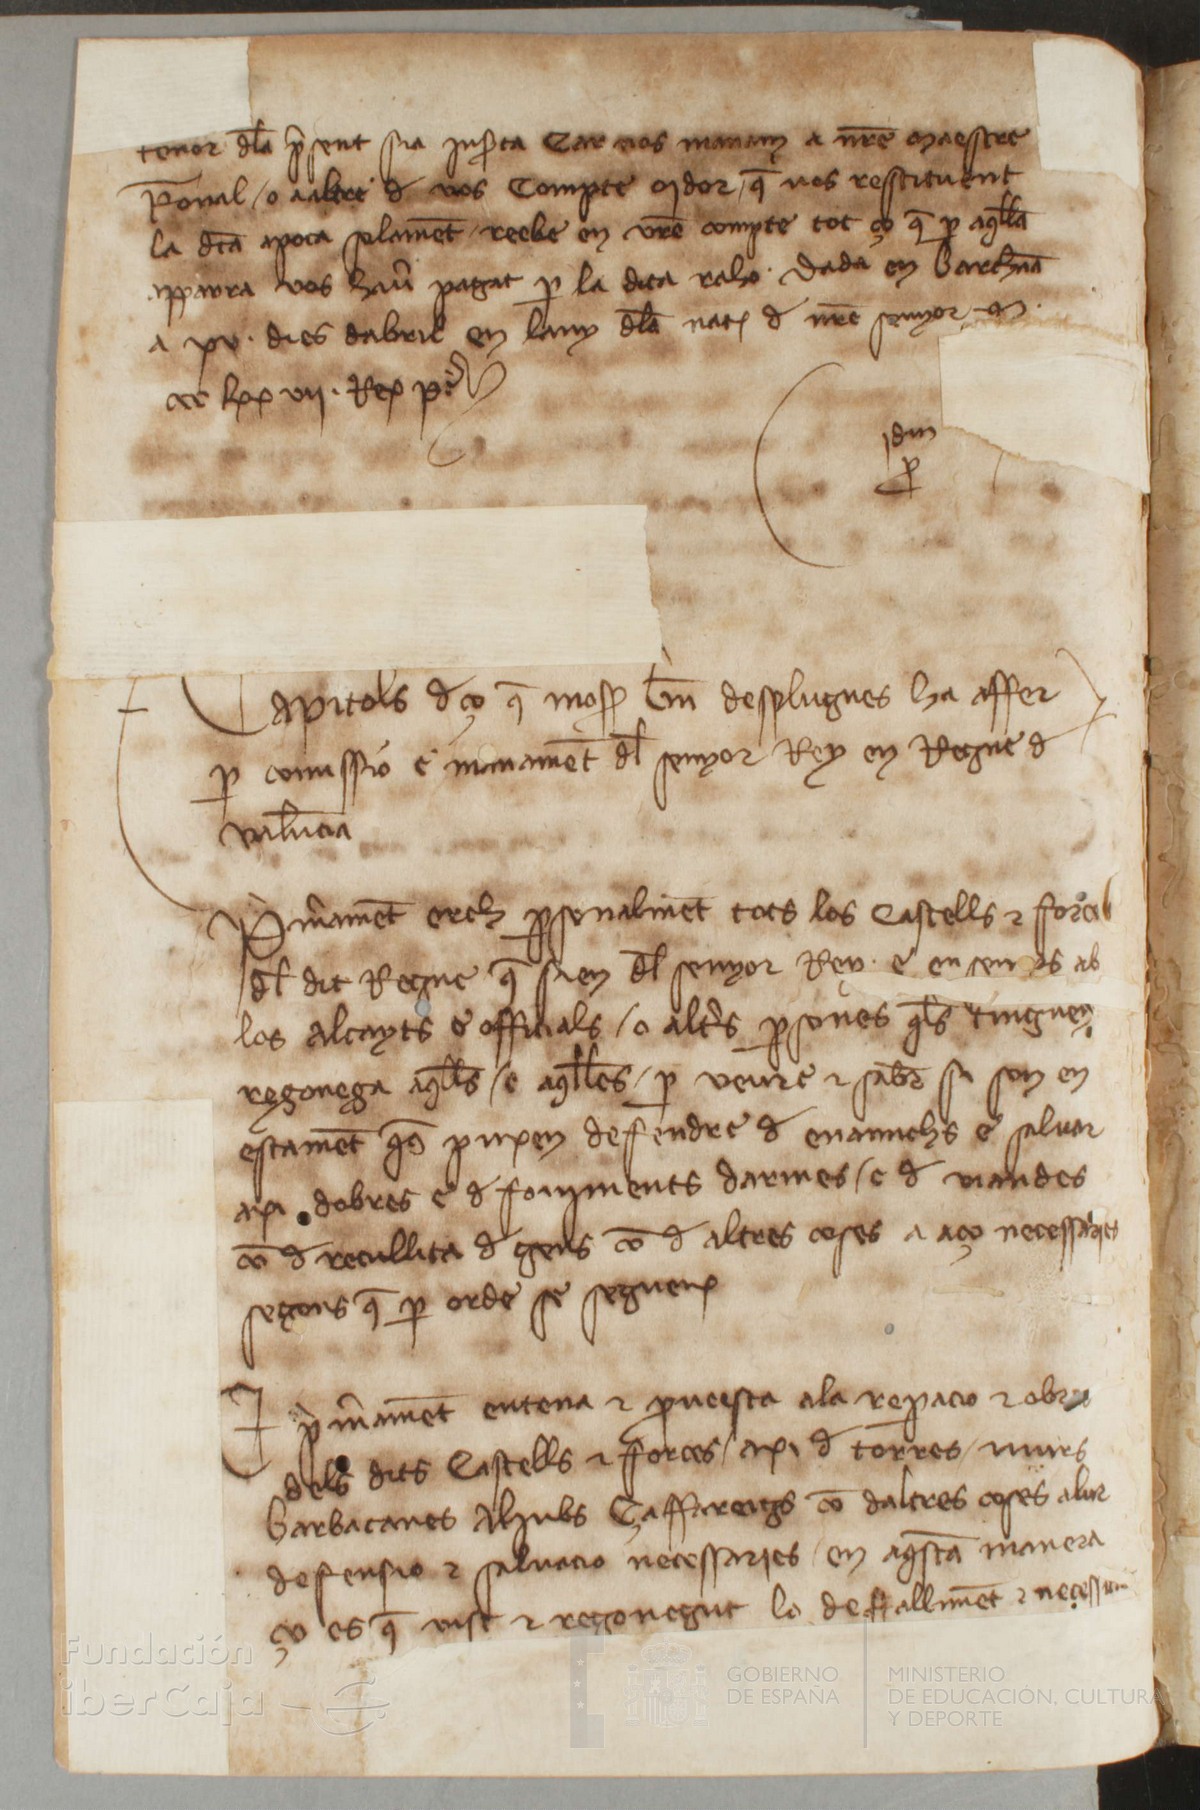 tenor dla p̄sent sia inserta Car nos manam a nr̄e maestre
Rōnal / o a altre d vos Compte oydor / q̄ vos restituent
la dc̄a apoca solamēt reebe en vr̄e compte tot ço q̄ p aq̄lla
apparra vos hauer pagat p la dita raho. Dada en Barchna
a xv. dies dabril en lany dla nat. d nr̄e senyor M.
ccc lxx vii. Rex pe.
idm
p
Capitols d ço q̄ mosse G̅m desplugues ha affer
p comissio e manament dl senyor Rey en Regne d
valencia
P̄mament erch p̄sonalment tots los Castells ⁊ forces
dl dit Regne q̄ sien dl senyor Rey. e en semps ab
los alcayts e officials / o altres p̄sones q̄ls tinguen
regonega aq̄lls / e aq̄lles / p veure ⁊ saber si son en
estament q̄s puxen defendre d enamichs e salvar
axi dobres e d forniments darmes / e d viandes
cō d recullita d gens cō d altres coses a aço necessaries
segons q̄ p orde se segueix
E p̄mament entena ⁊ proveesca ala repacio ⁊ obra
dels dits Castells ⁊ forces / axi d torres / murs
barbacanes Aljubs Çaffareigs cō daltres coses alur
defensio ⁊ salvacio necessaries / en aq̄sta manera
ço es q̄ vist ⁊ regonegut lo defalliment ⁊ necessari
Fundación
iberCaja
GOBIERNO
DE ESPAÑA
MINISTERIO
DE EDUCACIÓN, CULTURA
Y DEPORTE